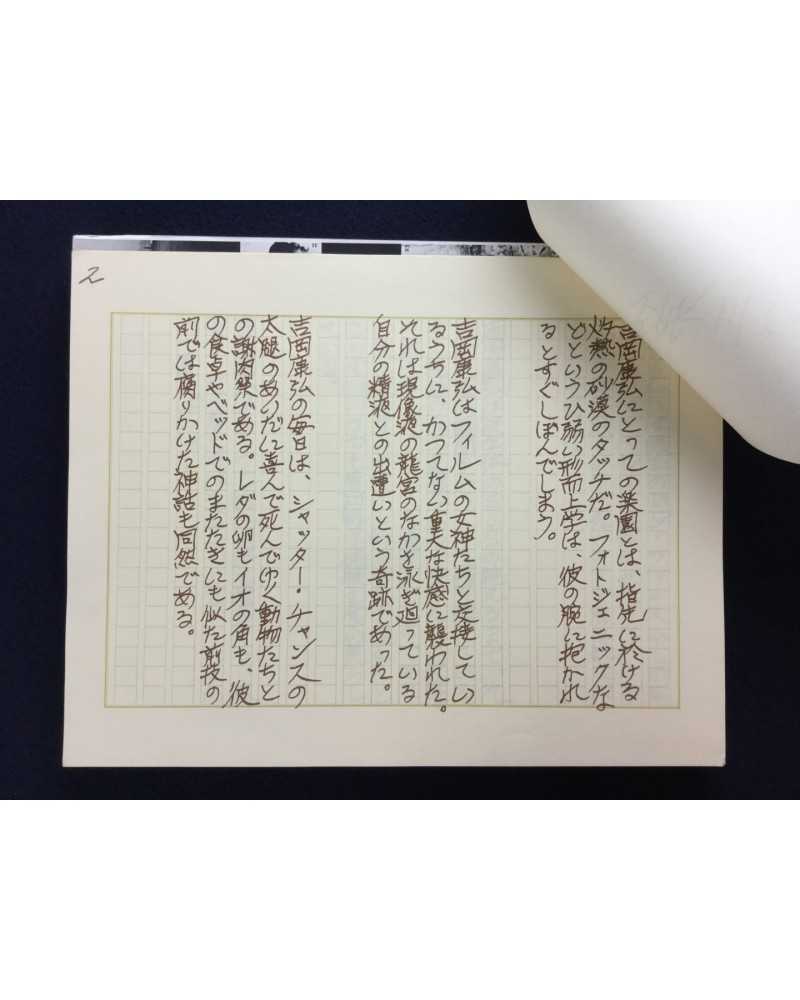 2
吉岡康弘にとっての楽園とは、指先に於ける
灼熱の砂漠のタッチだ。フォトジェニックな
どというひ弱い形而上学は、彼の腕に抱かれ
るとすぐしぼんでしまう。
吉岡康弘はフィルムの女神たちと交接してい
るうちに、かつてない重大な快感に襲われた。
それは現像液の龍宮のなかを泳ぎ廻っている
自分の精液との出遭いという奇跡であった。
吉岡康弘の毎日は、シャッター・チャンスの
太腿のあいだに喜んで死んでゆく動物たちと
の謝肉祭である。レダの卵もイオの角も、彼
の食卓やベッドでのまたたきにも似た前技の
前では腐りかけた神話も同然である。